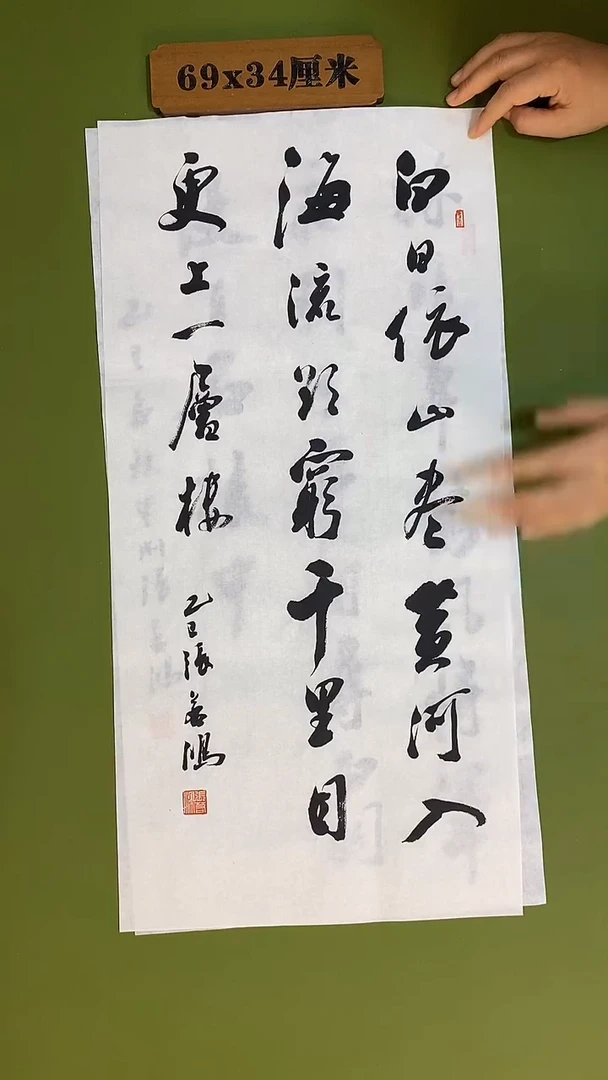 69x34厘米
白日依山尽黄河入
海流欲穷千里目
更上一层楼
乙巳张善鸿